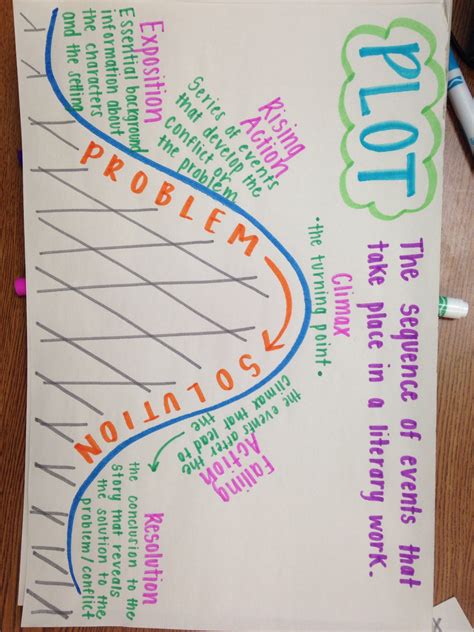 PLOT
The sequence of events that
take place in a literary work.
Climax
•the turning point•
Rising
Action
Series of events
that develop the
conflict or
the problem
Exposition
Essential background
information about
the characters
and the setting
PROBLEM
SOLUTION
Falling
ACTION
the events after the
climax that
lead to
Resolution
the conclusion to the
story that reveals
the solution to the
problem/conflict